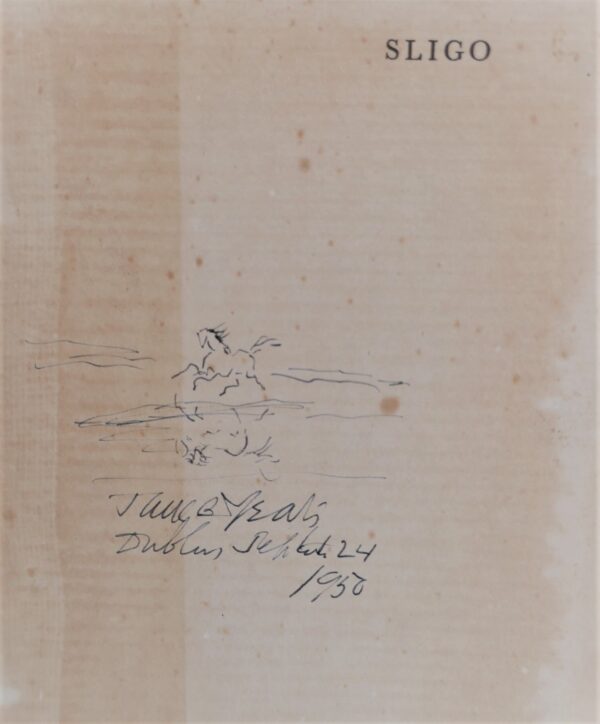 SLIGO
Jack B Yeats
Dublin Sept 24
1950